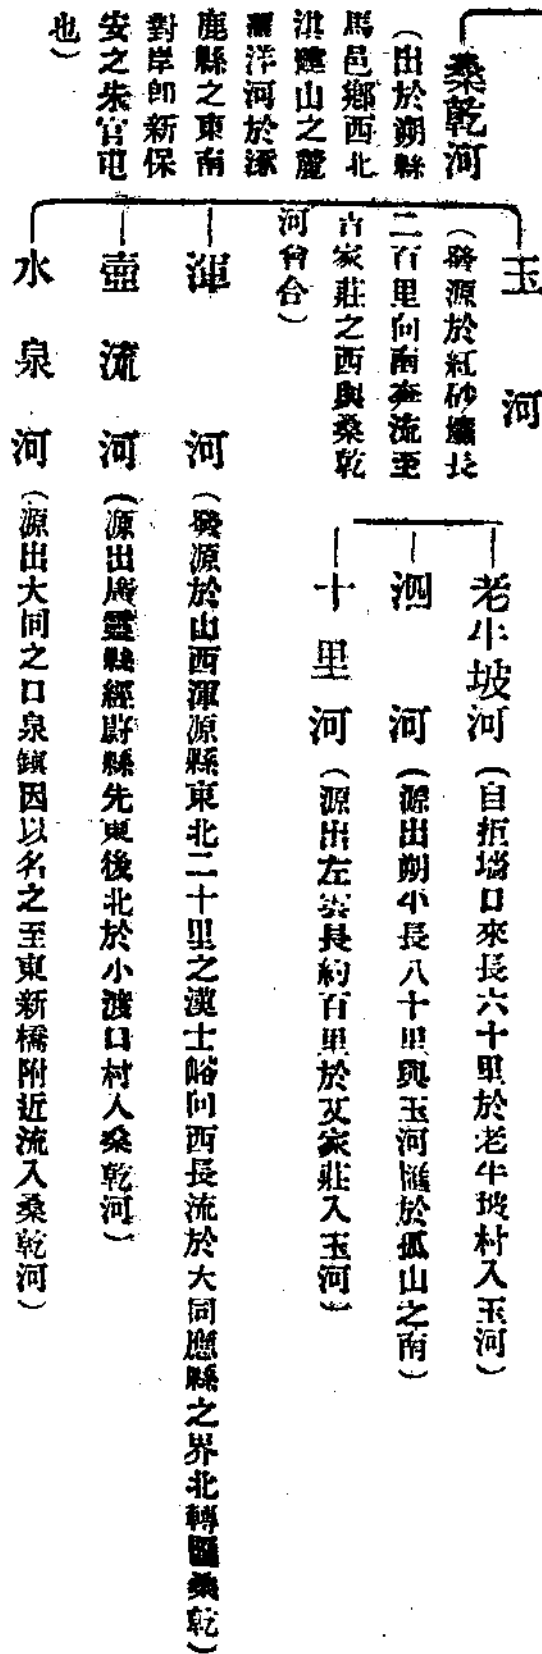 桑乾河
(出於朔縣
馬邑鄉西北
洪濤山之麓
滙洋河於涿
鹿縣之東南
對岸卽新保
安之朱官屯
也)
玉河
(發源於紅砂壩長
二百里向南奔流至
吉家莊之西與桑乾
河會合)
老牛坡河(自拒墻口來長六十里於老牛坡村入玉河)
泗河(源出朔平長八十里與玉河滙於孤山之南)
十里河(源出左雲長約百里於艾家莊入玉河)
渾河(發源於山西渾源縣東北二十里之漢士峪向西長流於大同應縣之界北轉匯桑乾)
壺流河(源出廣靈縣經蔚縣先東後北於小渡口村入桑乾河)
水泉河(源出大同之口泉鎭因以名之至東新橋附近流入桑乾河)